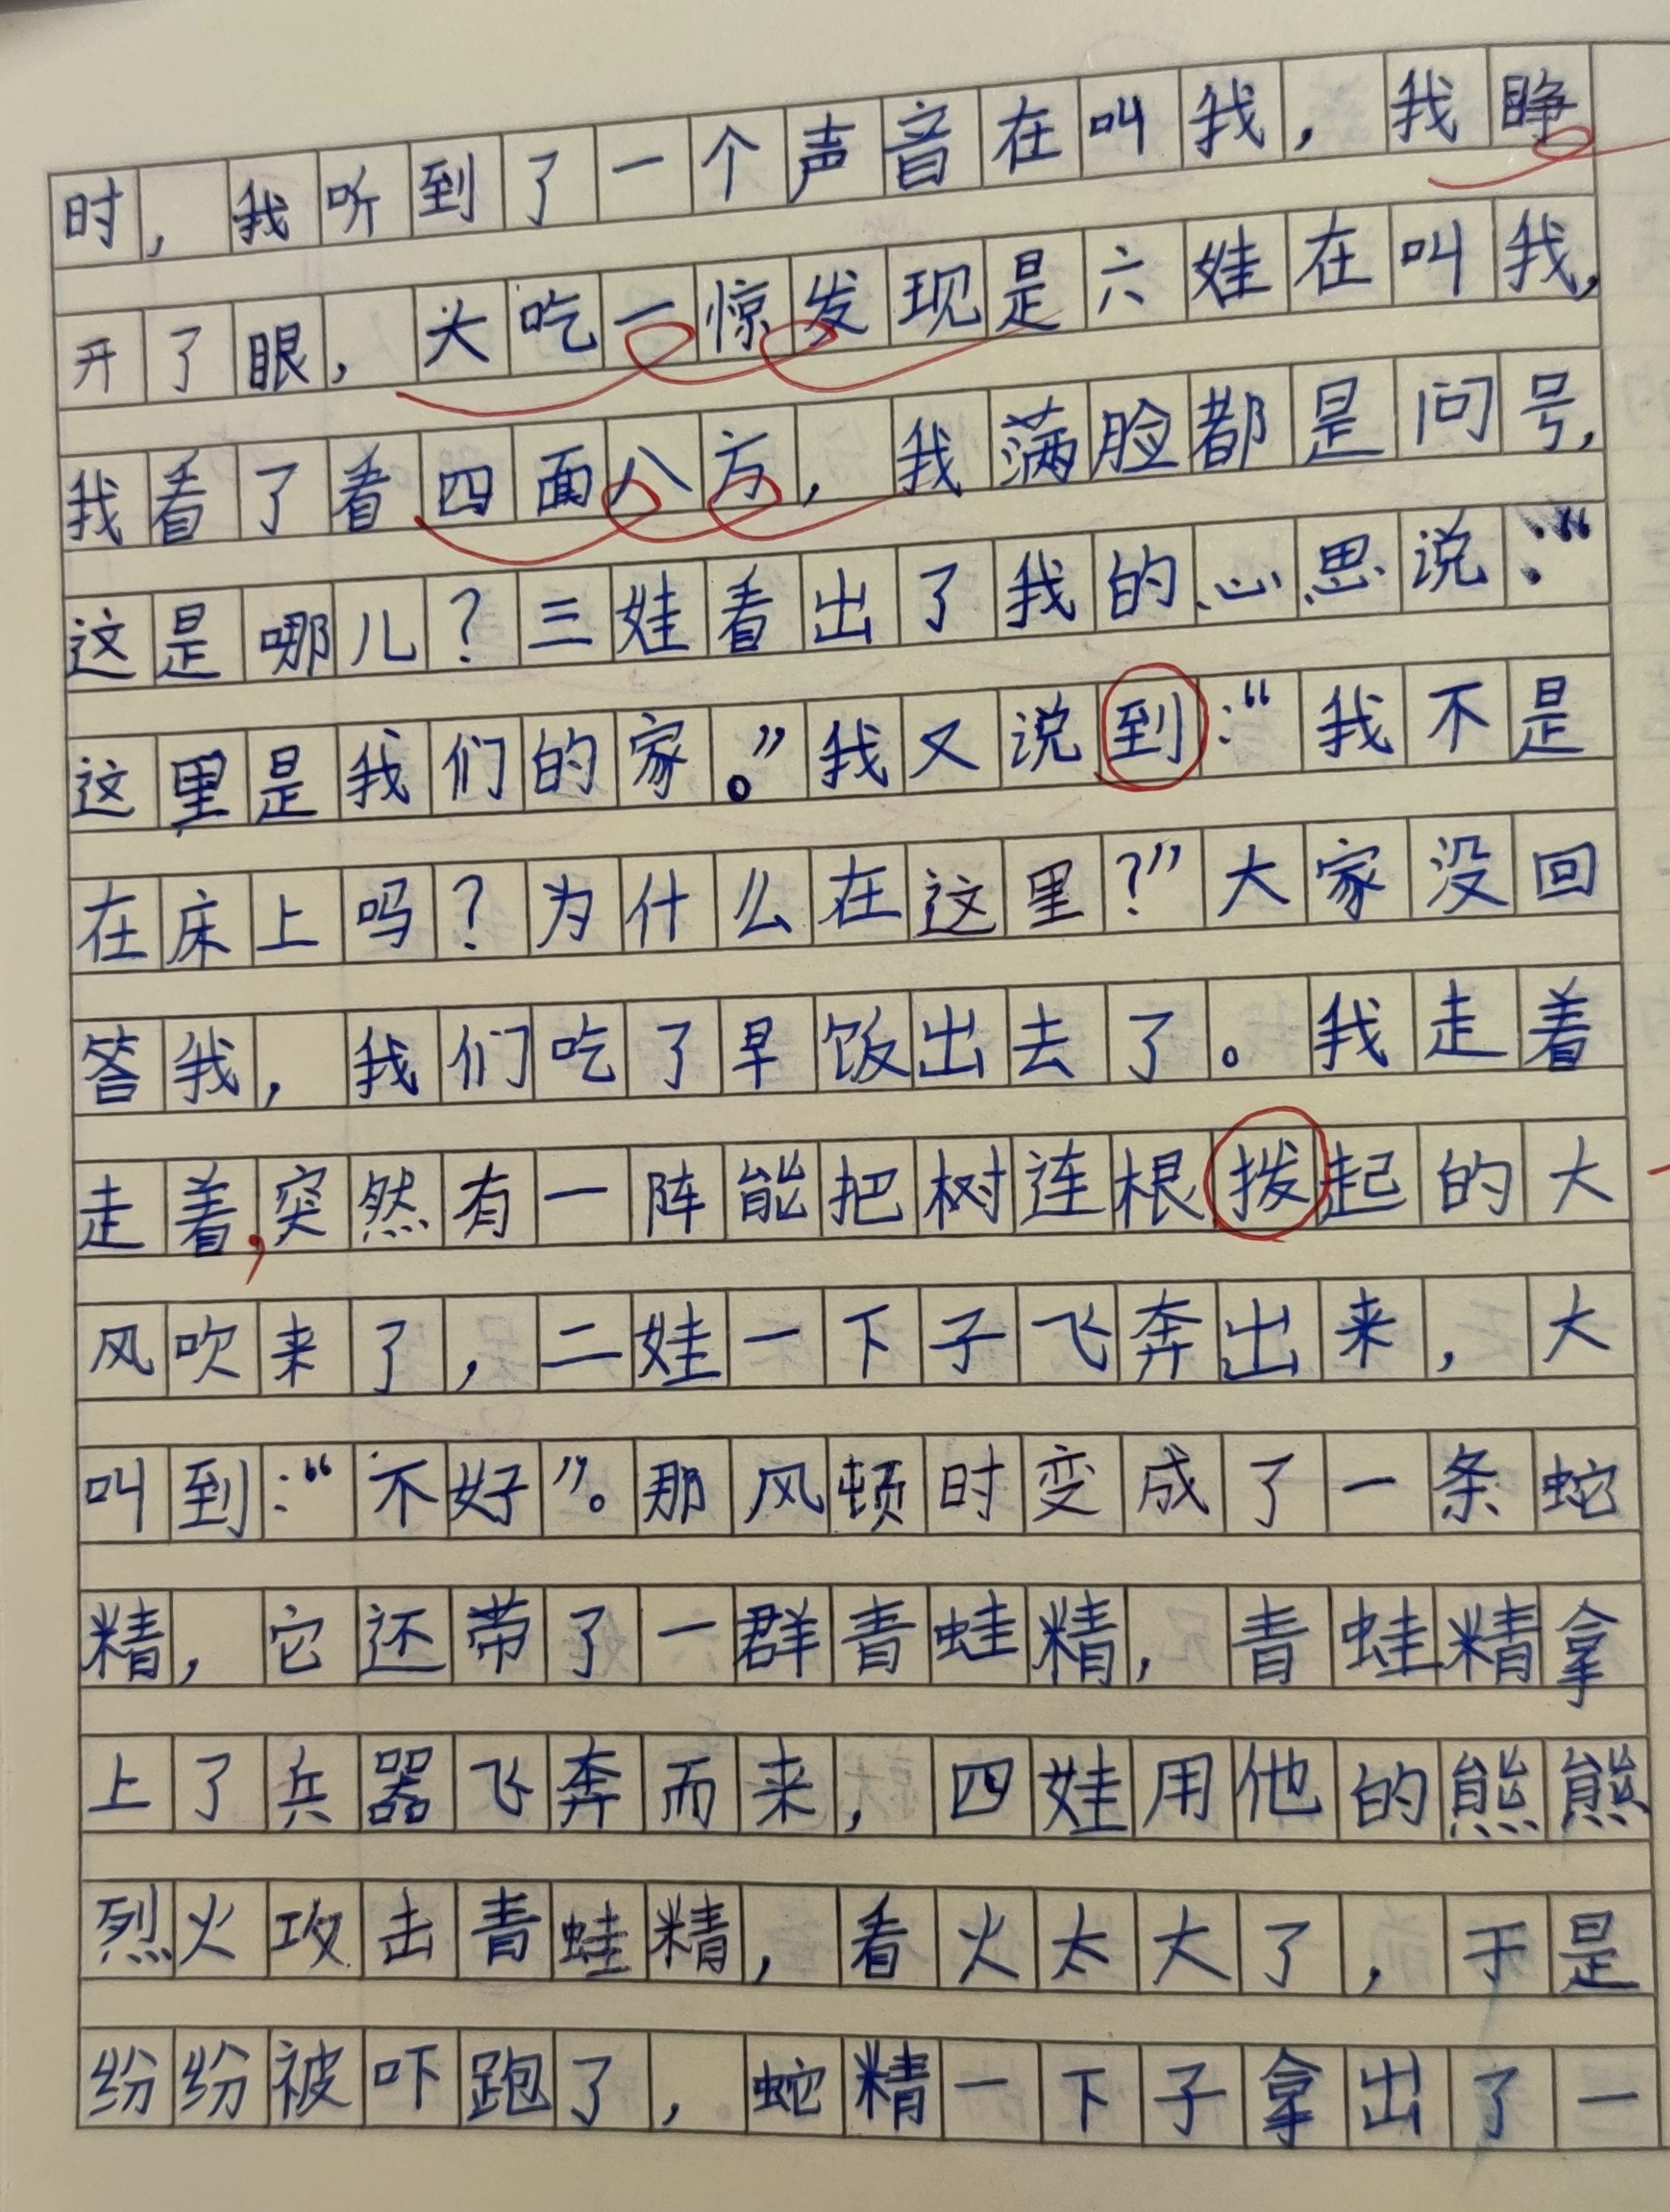 时，我听到了一个声音在叫我，我睁
开了眼，大吃一惊发现是六娃在叫我，
我看了看四面八方，我满脸都是问号，
这是哪儿？三娃看出了我的心思说：“
这里是我们的家。”我又说到：“我不是
在床上吗？为什么在这里？”大家没回
答我，我们吃了早饭出去了。我走着
走着，突然有一阵能把树连根拨起的大
风吹来了，二娃一下子飞奔出来，大
叫到：“不好”。那风顿时变成了一条蛇
精，它还带了一群青蛙精，青蛙精拿
上了兵器飞奔而来，四娃用他的熊熊
烈火攻击青蛙精，看火太大了，于是
纷纷被吓跑了，蛇精一下子拿出了一